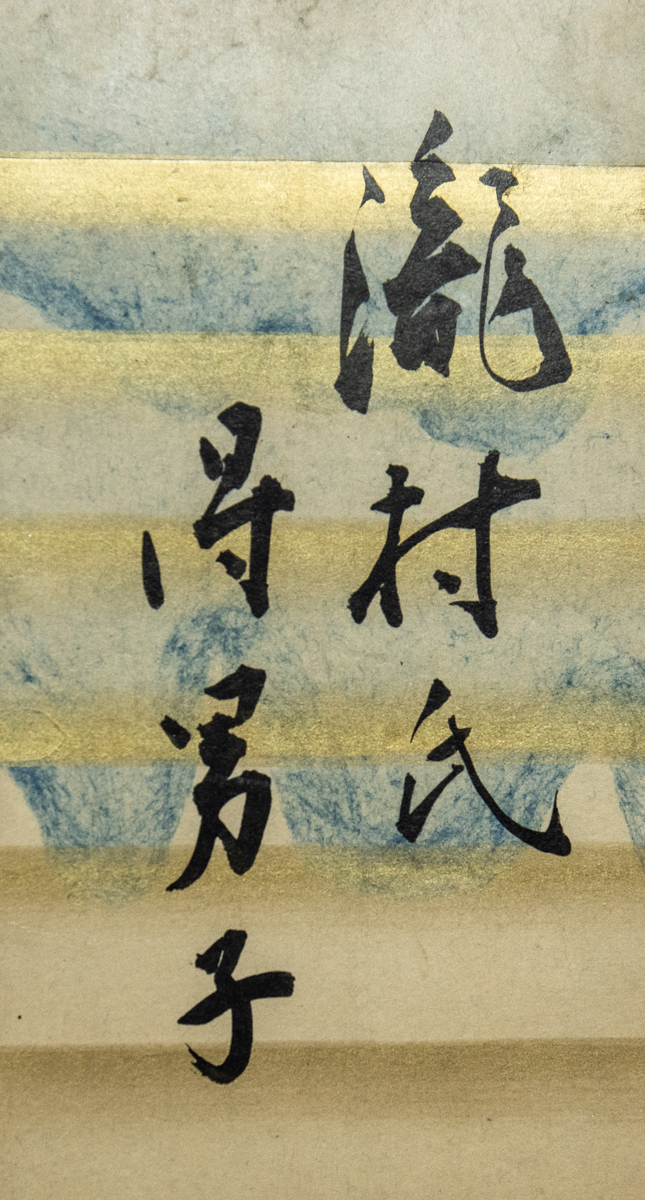 瀧村氏
得男子